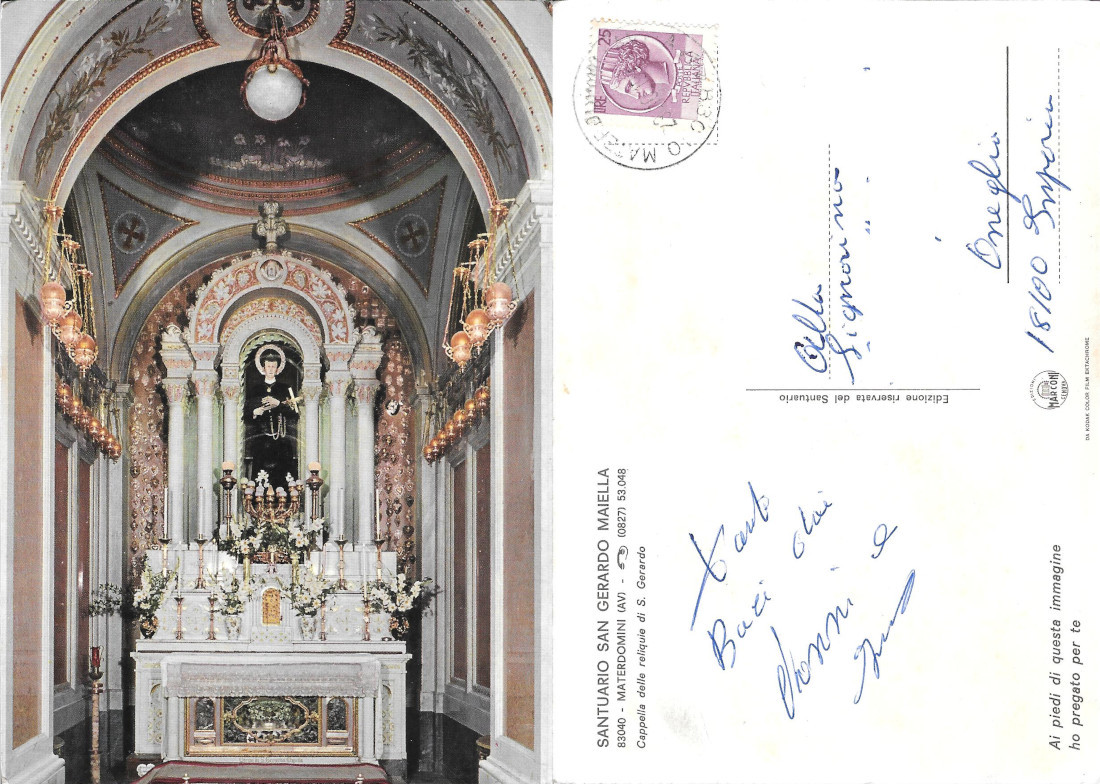 SANTUARIO SAN GERARDO MAIELLA
83040 - MATERDOMINI (AV) - ☎ (0827) 53.048
Cappella delle reliquie di S. Gerardo
Tanti
Baci dai
Nonni e
Ai piedi di questa immagine
ho pregato per te
Edizione riservata del Santuario
LIRE 25
REPVBBLICA
ITALIANA
Alla
Signorina
" "
Oneglia
18100 Imperia
MARCONI
GENOVA
DA KODAK COLOR FILM EKTACHROME